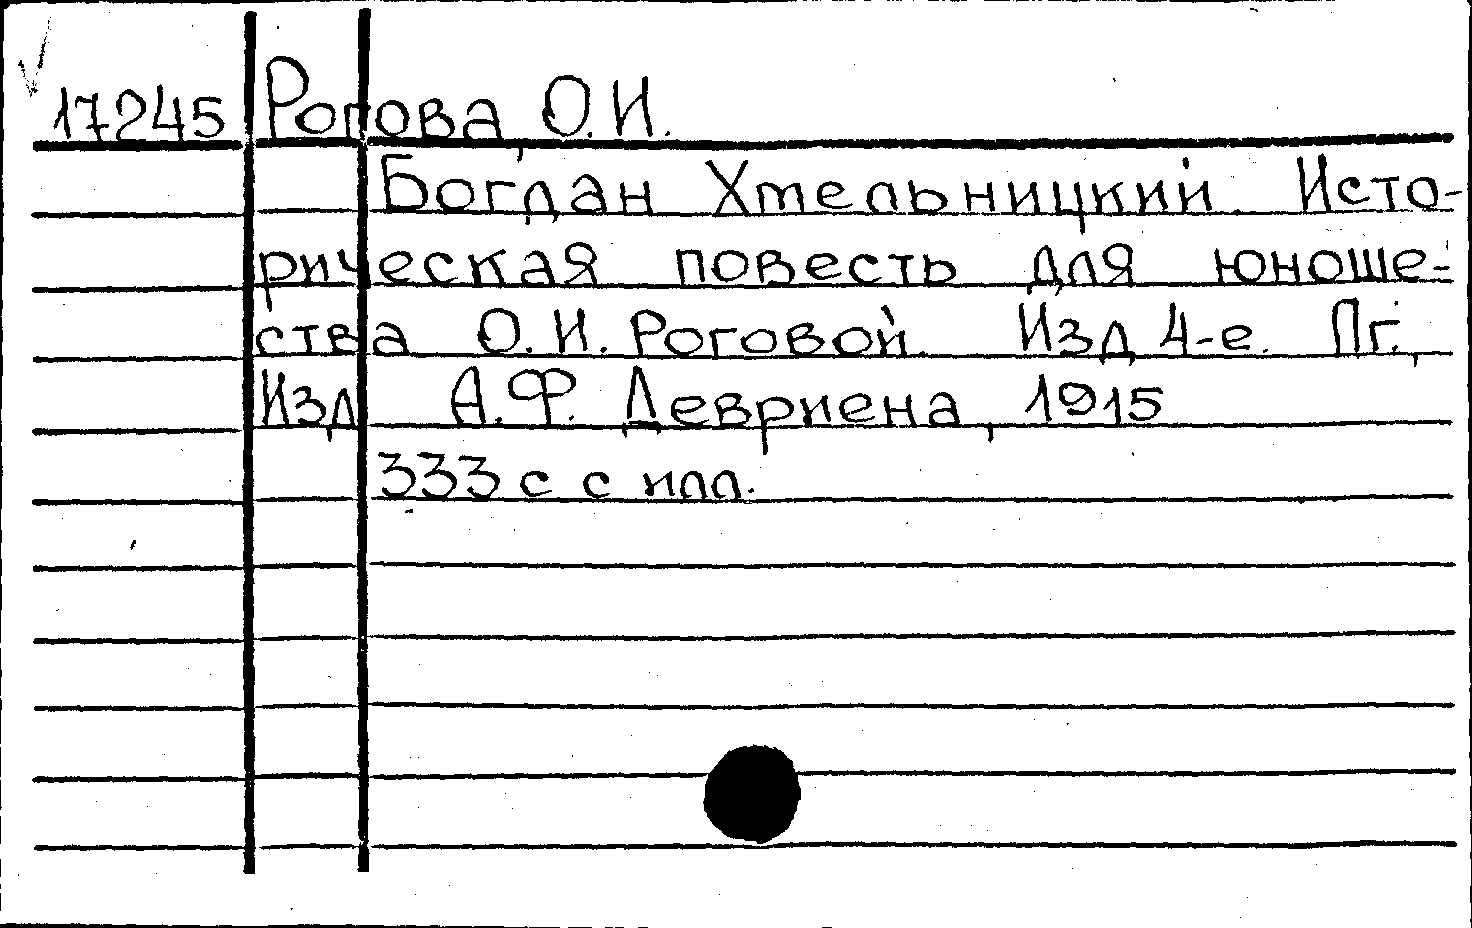 17245 Рогова, О.И.
Богдан Хмельницкий. Исто-
рическая повесть для юноше-
ства О.И. Роговой. Изд. 4-е. Пг.,
Изд. А.Ф. Девриена, 1915
333 с с илл.